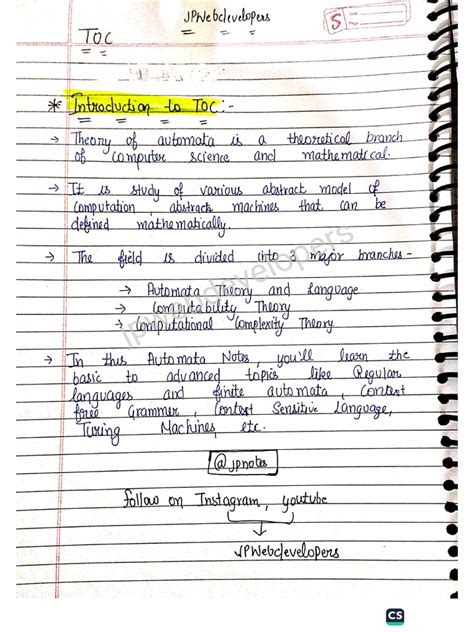 JPWebdevelopers
S
TOC
* Introduction to TOC:-
→ Theory of automata is a theoretical branch
of computer science and mathematical.
→ It is study of various abstract model of
computation, abstract machines that can be
defined mathematically.
→ The field is divided into 3 major branches-
→ Automata Theory and Language
→ Computability Theory
→ Computational Complexity Theory
→ In this Automata Notes, you'll learn the
basic to advanced topics like Regular
languages and finite automata, Context
free Grammer, Context Sensitive Language,
Turing Machines, etc.
@jpnotes
follow on Instagram, youtube
JPWebdevelopers
jpwebdevelopers
CS